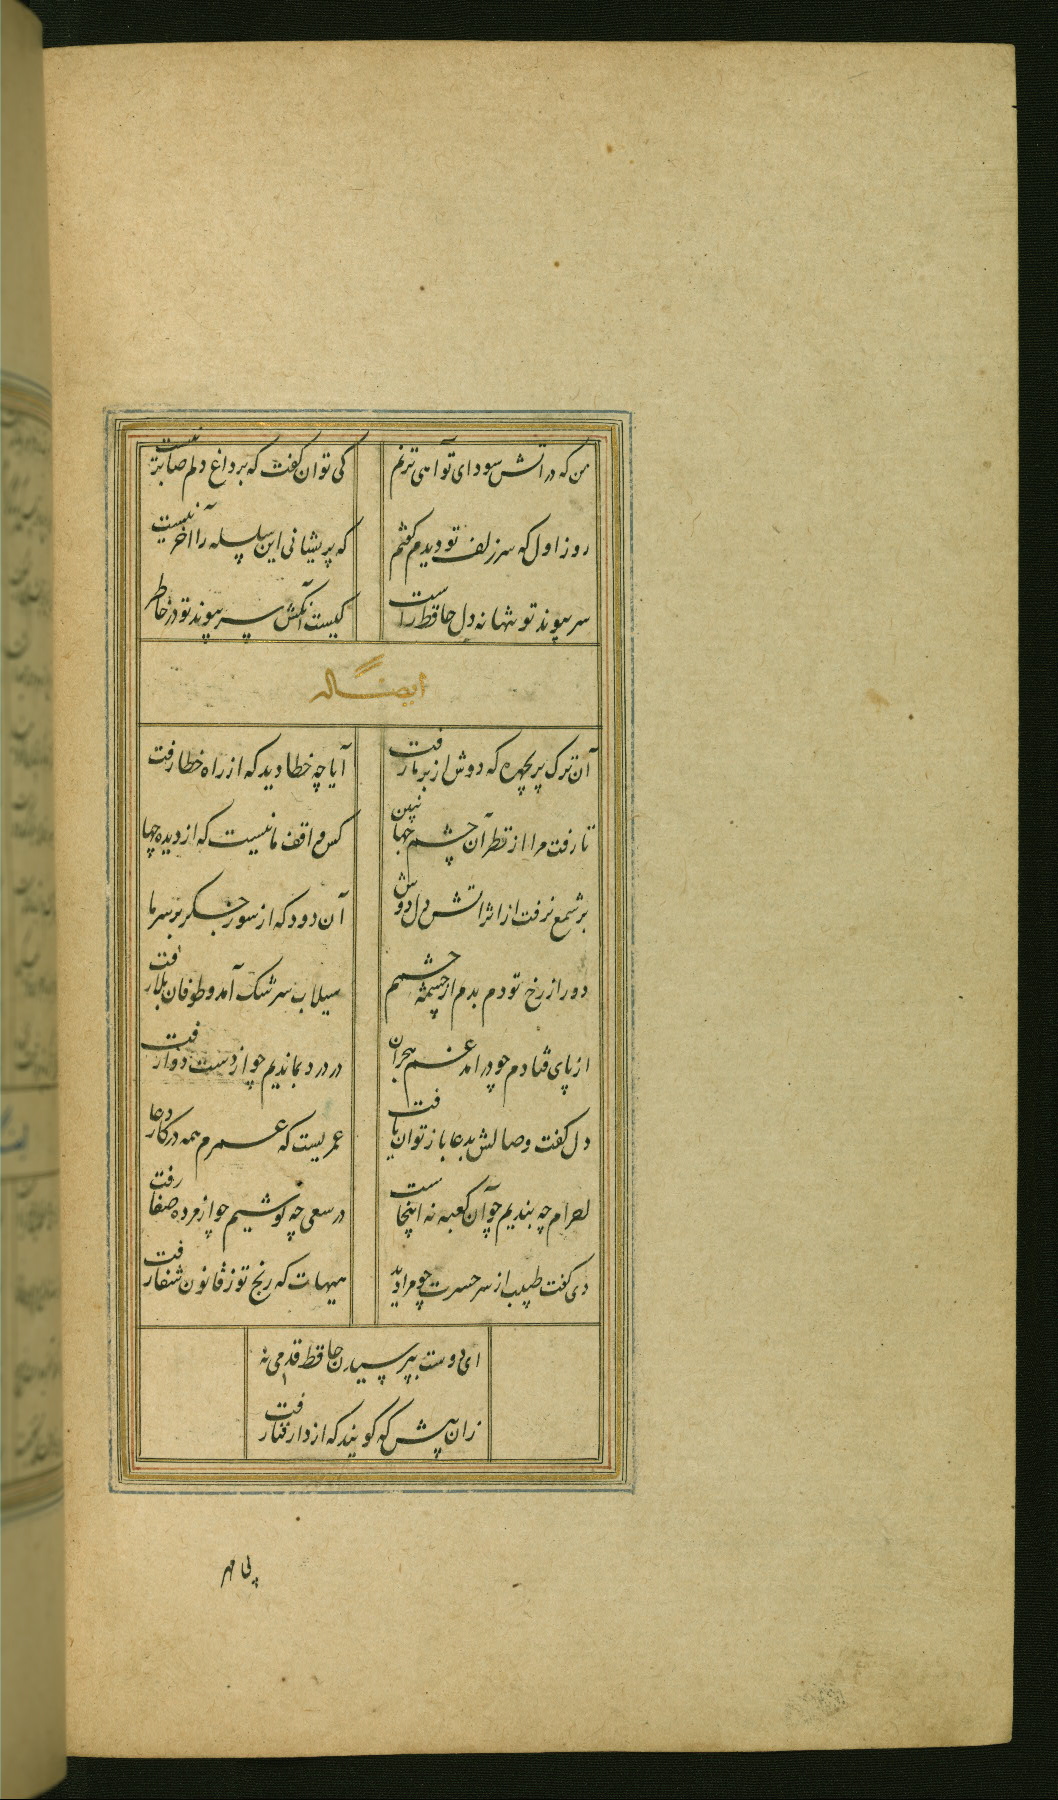 من که در آتش سودای تو آهی نزنم
کی توان گفت که بر داغ دلم صابر نیست
روز اول که سر زلف تو دیدم گفتم
که پریشانی این سلسله را آخر نیست
سر پیوند تو تنها نه دل حافظ راست
کیست آنکش سر پیوند تو در خاطر
ایضاً له
آن ترک پریچهره که دوش از بر ما رفت
آیا چه خطا دید که از راه خطا رفت
تا رفت مرا از نظر آن چشم جهان بین
کس واقف ما نیست که از دیده چها
بر شمع نرفت از اثر آتش دل دوش
آن دود که از سوز جگر بر سر ما
دور از رخ تو دم بدم از چشمه چشم
سیلاب سرشک آمد و طوفان بلا رفت
از پای فتادم چو درآمد غم هجران
در درد بماندیم چو از دست دوا رفت
دل گفت وصالش بدعا باز توان یافت
عمریست که عمرم همه در کار دعا
احرام چه بندیم چو آن کعبه نه اینجاست
در سعی چه کوشیم چو از مروه صفا رفت
دی گفت طبیب از سر حسرت چو مرا دید
هیهات که رنج تو ز قانون شفا رفت
ای دوست بپرسیدن حافظ قدمی نه
زان پیش که گویند که از دار فنا رفت
بی مهر